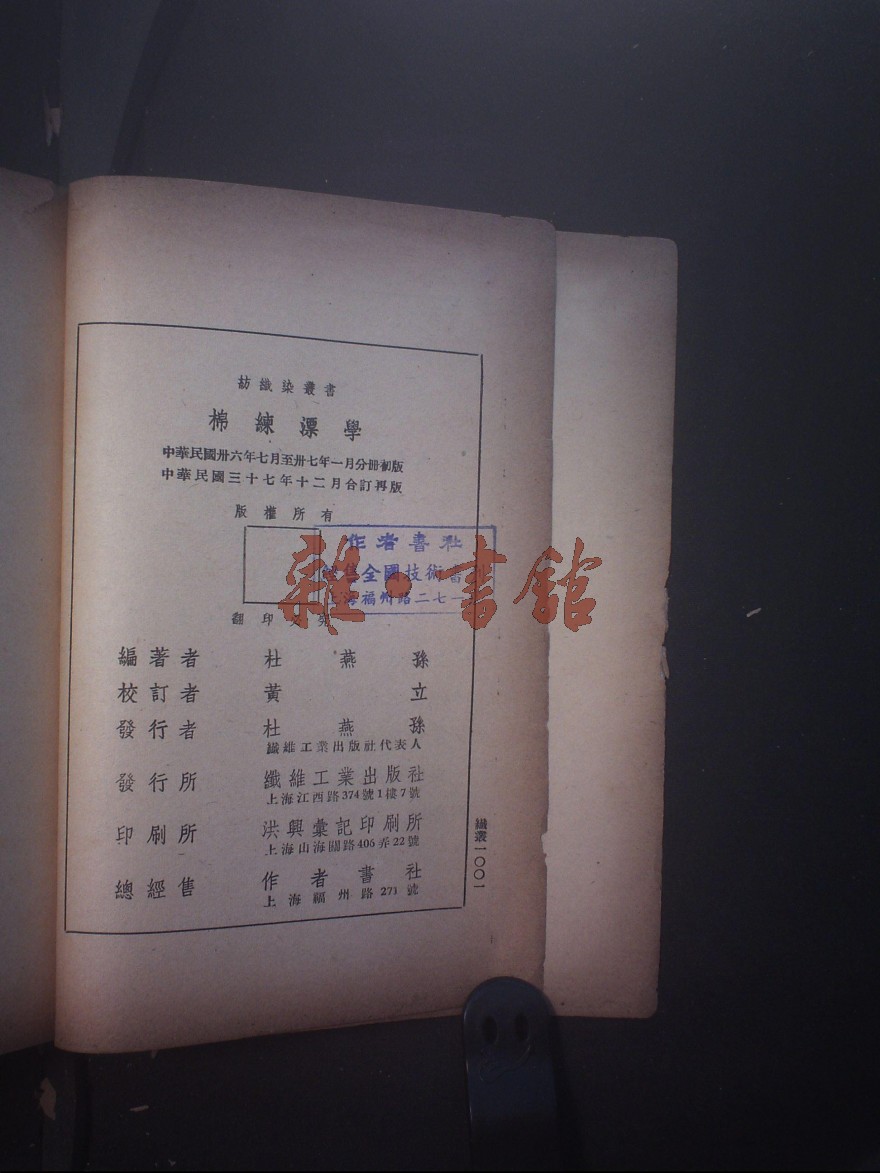 紡織染叢書
棉練漂學
中華民國卅六年七月至卅七年一月分冊初版
中華民國三十七年十二月合訂再版
版權所有
作者書社
售全國技術書刊
上海福州路二七一
雜·書館
翻印必究
編著者 杜燕孫
校訂者 黃立
發行者 杜燕孫
纖維工業出版社代表人
發行所 纖維工業出版社
上海江西路374號1樓7號
印刷所 洪興彙記印刷所
上海山海關路406弄22號
總經售 作者書社
上海福州路271號
纖叢一〇〇一